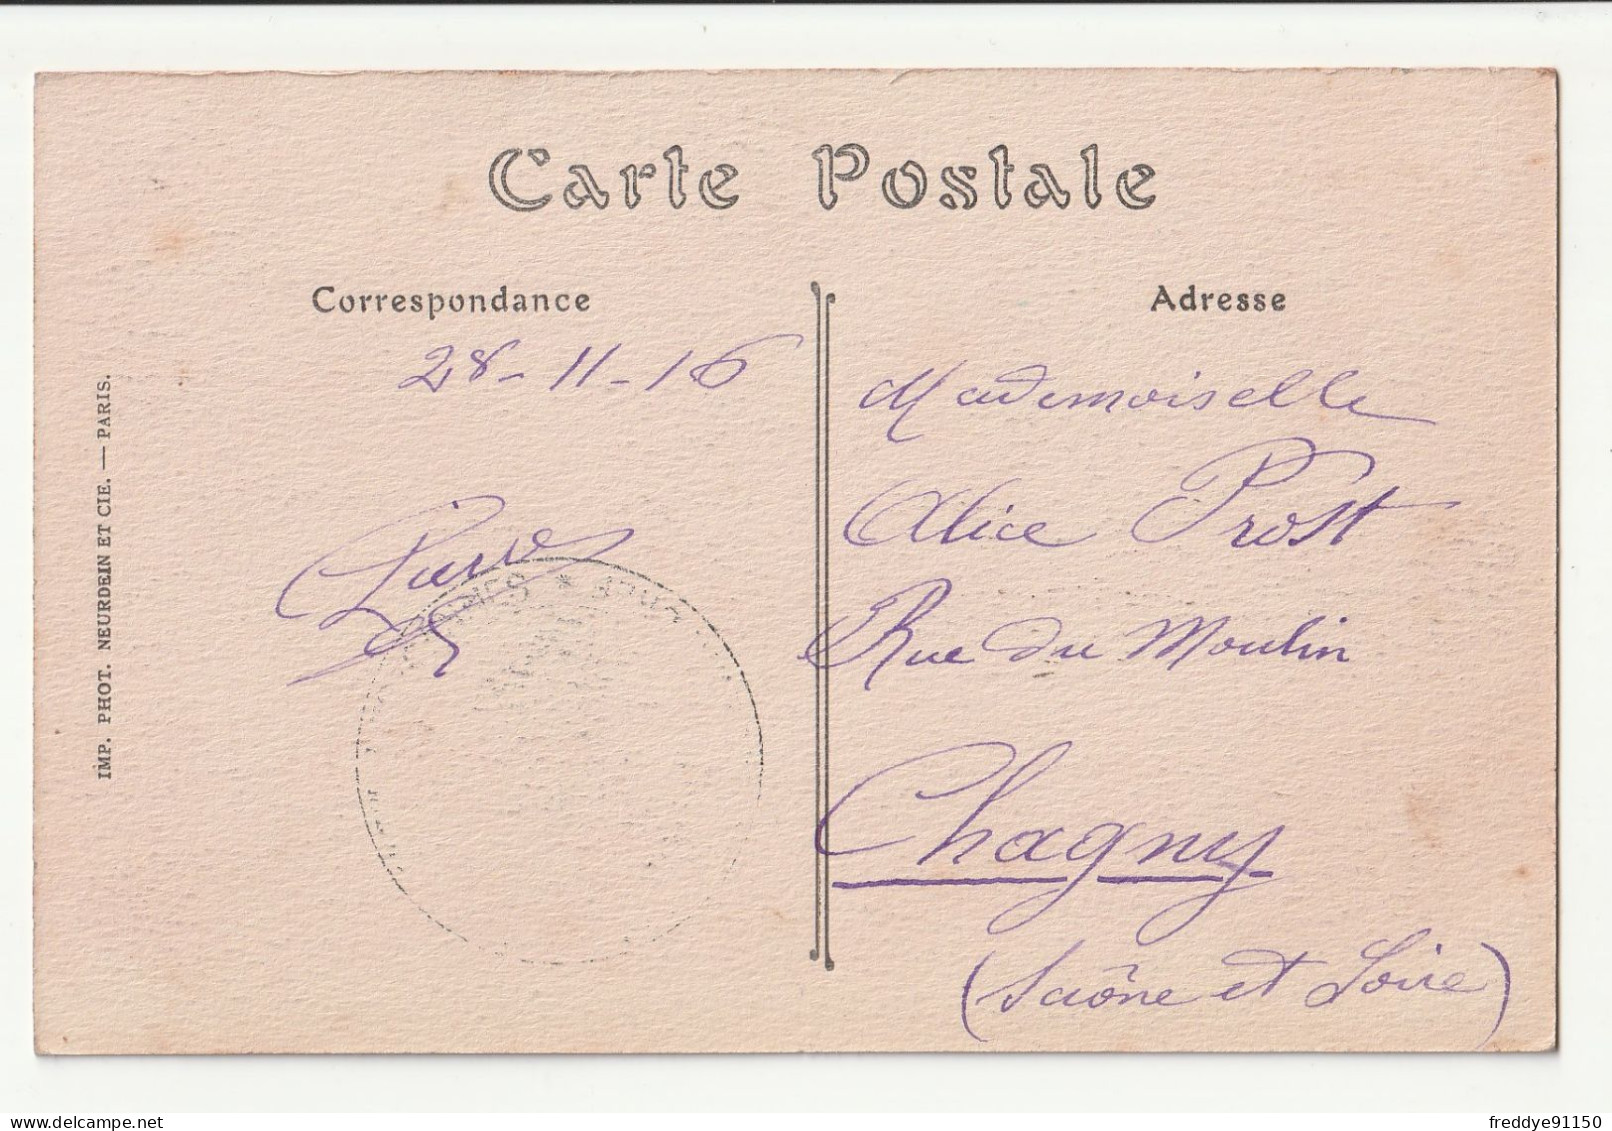 Carte Postale
Correspondance
28-11-16
Adresse
Mademoiselle
Alice Prost
Rue du Moulin
Chagny
(Saône et Loire)
IMP. PHOT. NEURDEIN ET CIE. — PARIS.
freddye91150